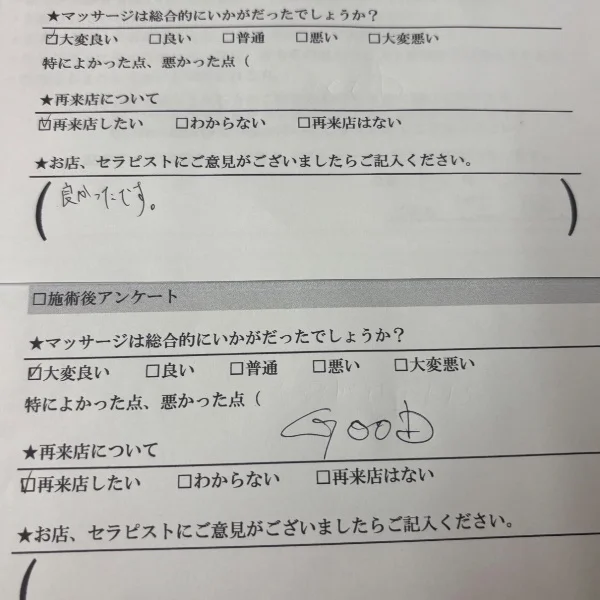 ★マッサージは総合的にいかがだったでしょうか？
☑大変良い □良い □普通 □悪い □大変悪い
特によかった点、悪かった点（
★再来店について
☑再来店したい □わからない □再来店はない
★お店、セラピストにご意見がございましたらご記入ください。
(良かったです。)
□施術後アンケート
★マッサージは総合的にいかがだったでしょうか？
☑大変良い □良い □普通 □悪い □大変悪い
特によかった点、悪かった点（
GOOD
★再来店について
☑再来店したい □わからない □再来店はない
★お店、セラピストにご意見がございましたらご記入ください。
(